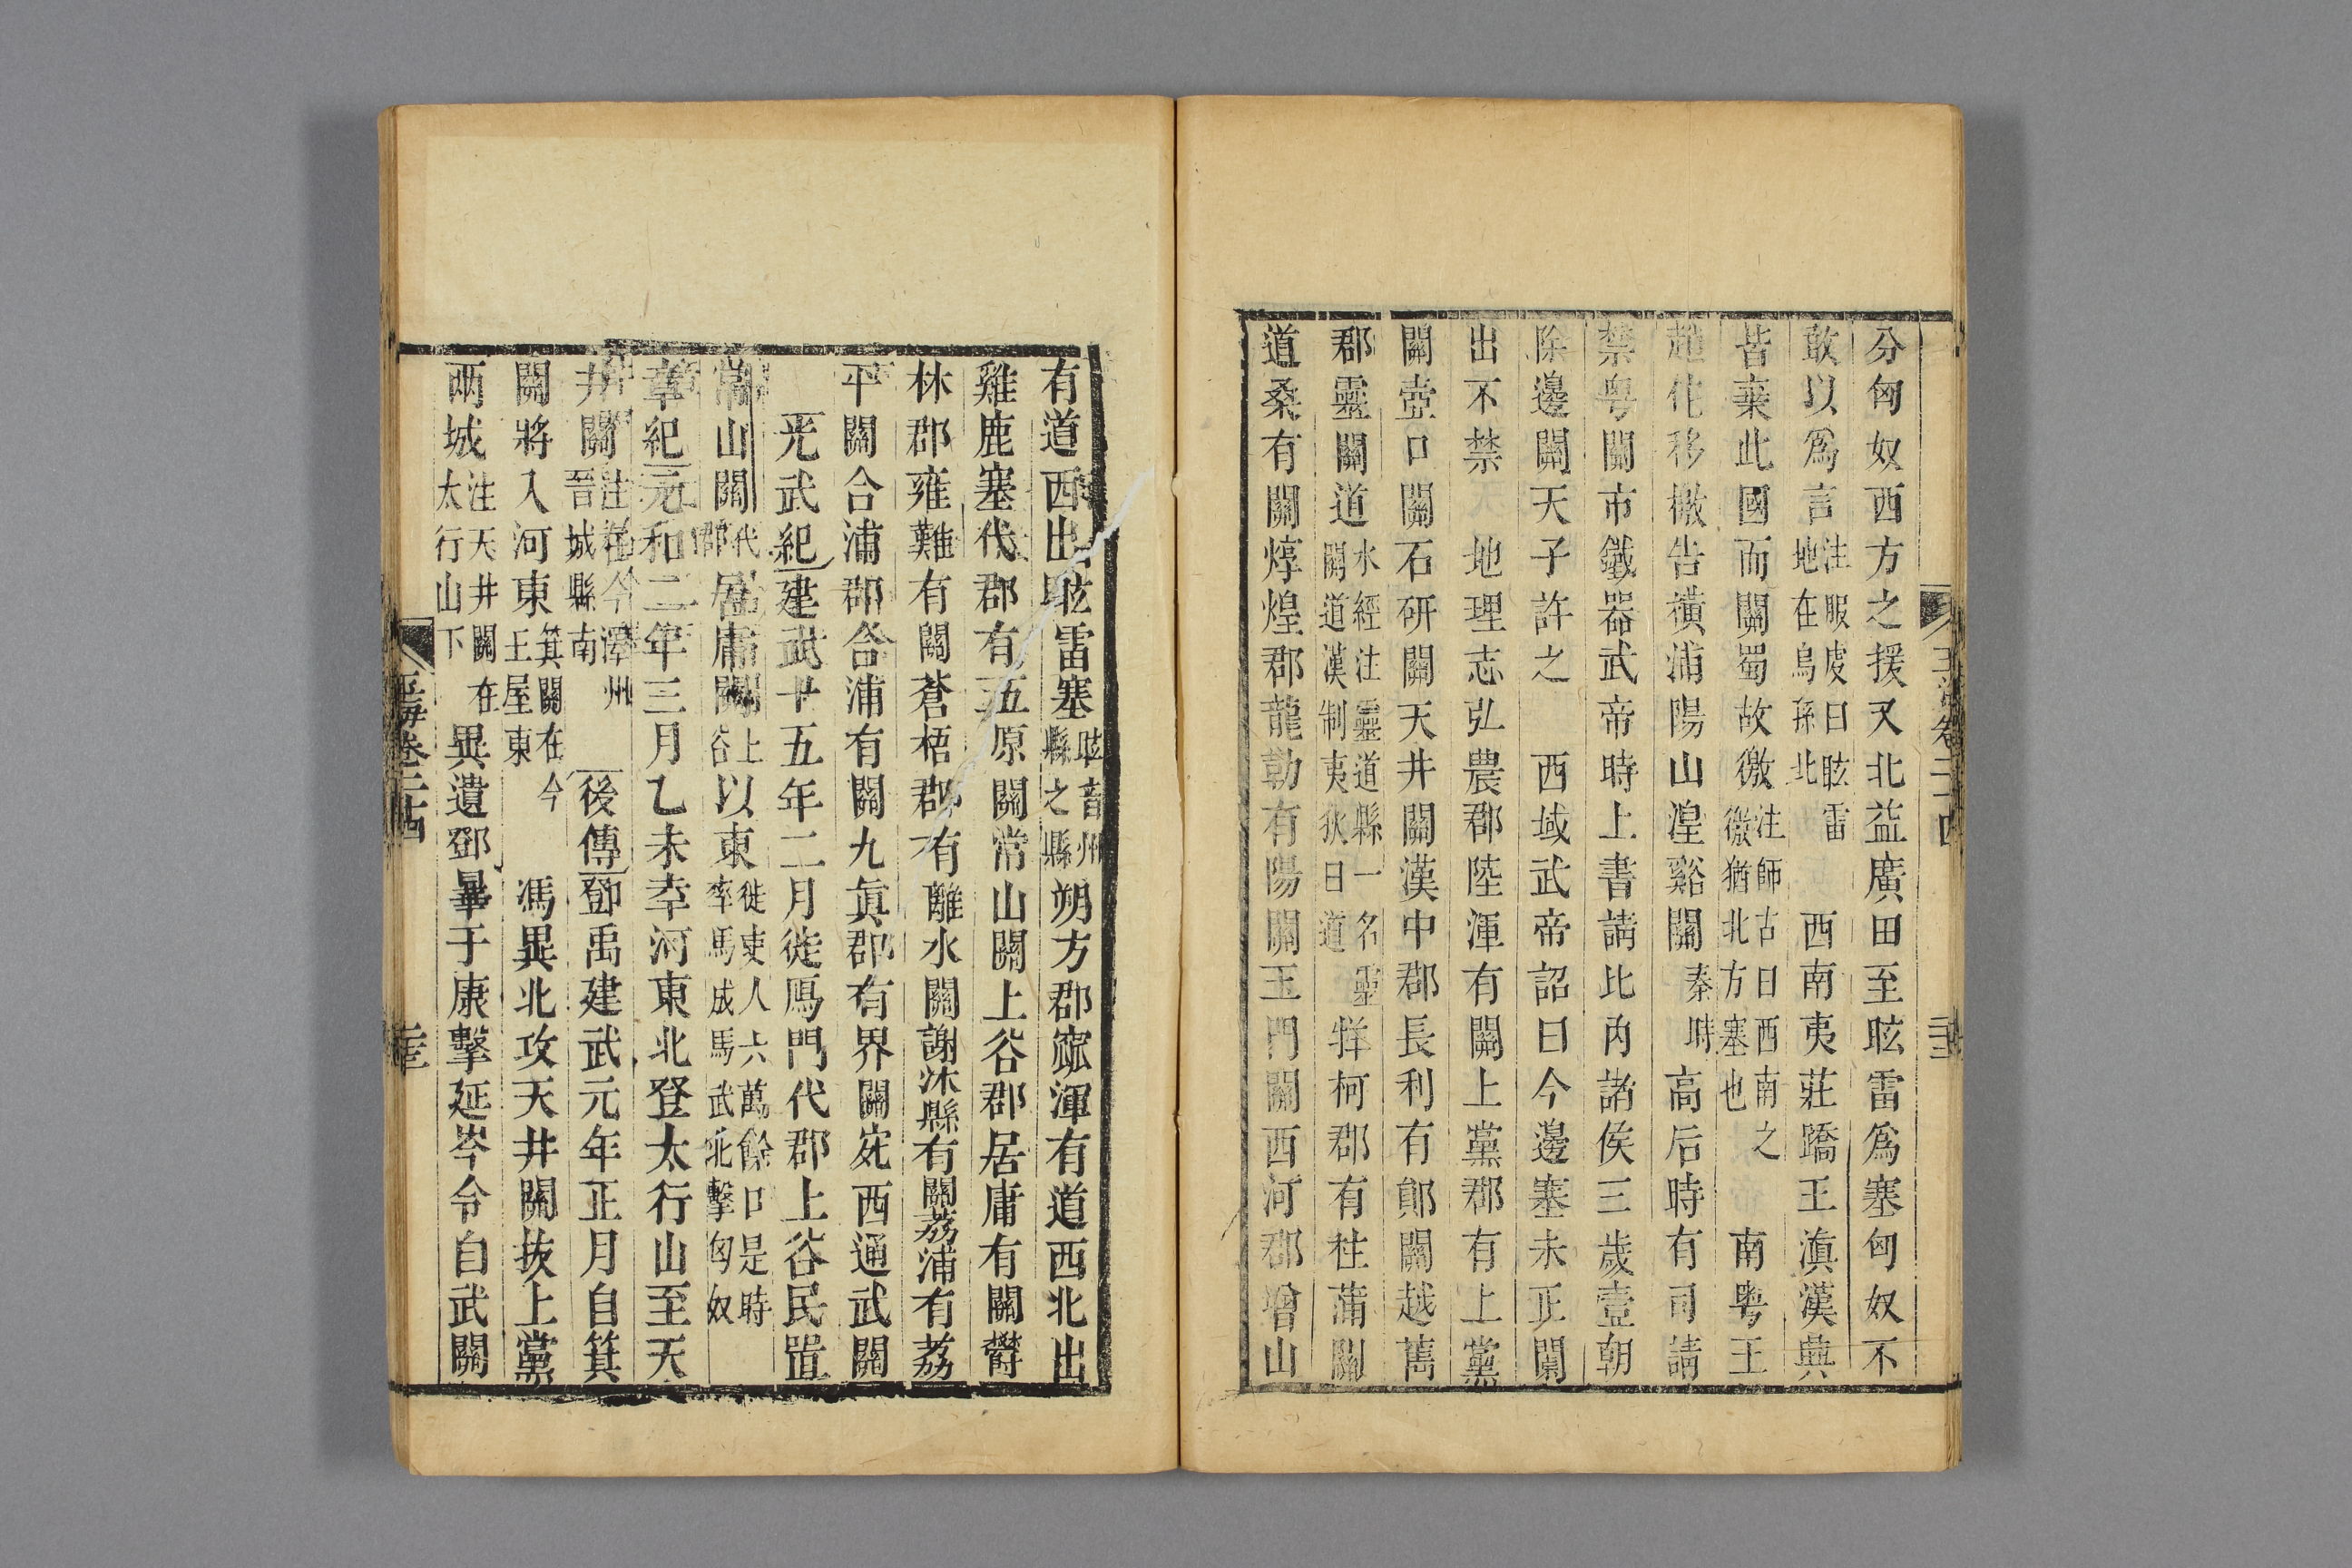 玉海卷二十四
分匈奴西方之援又北益廣田至眩雷爲塞匈奴不
敢以爲言注服虔曰眩雷地在烏孫北西南夷莊蹻王滇漢興
皆棄此國而關蜀故徼注師古曰西南之徼猶北方塞也南粤王
趙佗移檄告橫浦陽山湟谿關秦時高后時有司請
禁粤關市鐵器武帝時上書請比內諸侯三歲壹朝
除邊關天子許之 西域武帝詔曰今邊塞未正闌
出不禁 地理志弘農郡陸渾有關上黨郡有上黨
關壺口關石硏關天井關漢中郡長利有鄖關越嶲
郡靈關道水經注靈道縣一名靈關道漢制夷狄曰道牂柯郡有柱蒲關
道桑有關焞煌郡龍勒有陽關玉門關西河郡增山
有道西出眩雷塞眩音州縣之縣朔方郡窳渾有道西北出
雞鹿塞代郡有五原關常山關上谷郡居庸有關鬱
林郡雍難有關蒼梧郡有離水關謝沐縣有關荔浦有荔
平關合浦郡合浦有關九眞郡有界關宛西通武關
光武紀建武十五年二月徙鴈門代郡上谷民置
常山關代郡居庸關上谷以東徙吏人六萬餘口是時率馬成馬武北擊匈奴
章紀元和二年三月乙未幸河東北登太行山至天
井關注在今澤州晉城縣南後傳鄧禹建武元年正月自箕
關將入河東箕關在今王屋東馮異北攻天井關拔上黨
兩城注天井關在太行山下異遣鄧曄于康擊延岑令自武關
玉海卷二十四